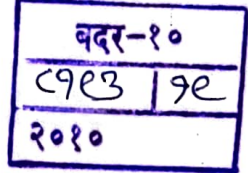 बदर-१०
८१९३ | १९
२०१०